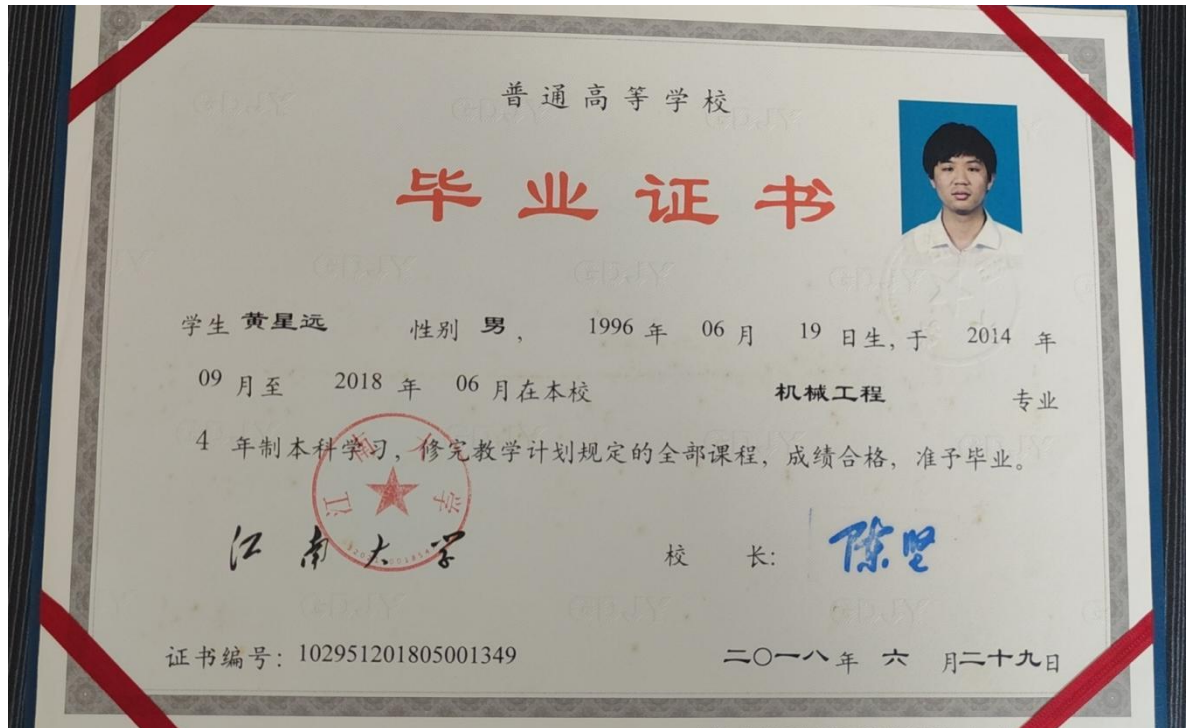 普通高等学校
毕业证书
学生 黄星远 性别 男, 1996 年 06 月 19 日生, 于 2014 年
09 月至 2018 年 06 月在本校 机械工程 专业
4 年制本科学习, 修完教学计划规定的全部课程, 成绩合格, 准予毕业。
江南大学
江南大学 校 长: 陈坚
证书编号: 102951201805001349 二〇一八年 六 月二十九日